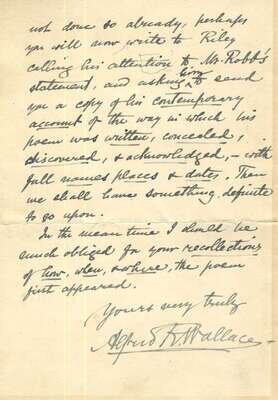 not done so already, perhaps
you will now write to Riley
calling his attention to Mr. Robb's
statement, and asking him to send
you a copy of his contemporary
account of the way in which his
poem was written, concealed,
discovered, & acknowledged, — with
full names places & dates. Then
we shall have something definite
to go upon.
In the mean time I should be
much obliged for your recollections
of how, when, & where, the poem
first appeared.
Yours very truly
Alfred R. Wallace